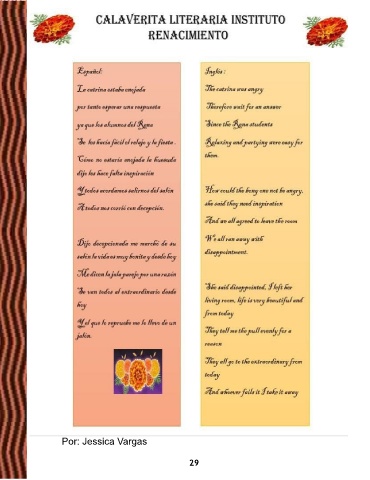 CALAVERITA LITERARIA INSTITUTO
RENACIMIENTO
Español:
La catrina estaba enojada
por tanto esperar una respuesta
ya que los alumnos del Rena
Se les hacia fácil el relajo y la fiesta .
Cómo no estaría enojada la huesuda
dijo les hace falta inspiración
Y todos acordamos salirnos del salón
A todos nos corrió con decepción.
Dijo decepcionada me marcho de su
salón la vida es muy bonita y desde hoy
Me dicen la jala parejo por una razón
Se van todos al extraordinario desde
hoy
Y al que lo repruebe me lo llevo de un
jalón.
Inglés :
The catrina was angry
Therefore wait for an answer
Since the Rena students
Relaxing and partying were easy for
them.
How could the bony one not be angry,
she said they need inspiration
And we all agreed to leave the room
We all ran away with
disappointment.
She said disappointed, I left her
living room, life is very beautiful and
from today
They tell me the pull evenly for a
reason
They all go to the extraordinary from
today
And whoever fails it I take it away
Por: Jessica Vargas
29